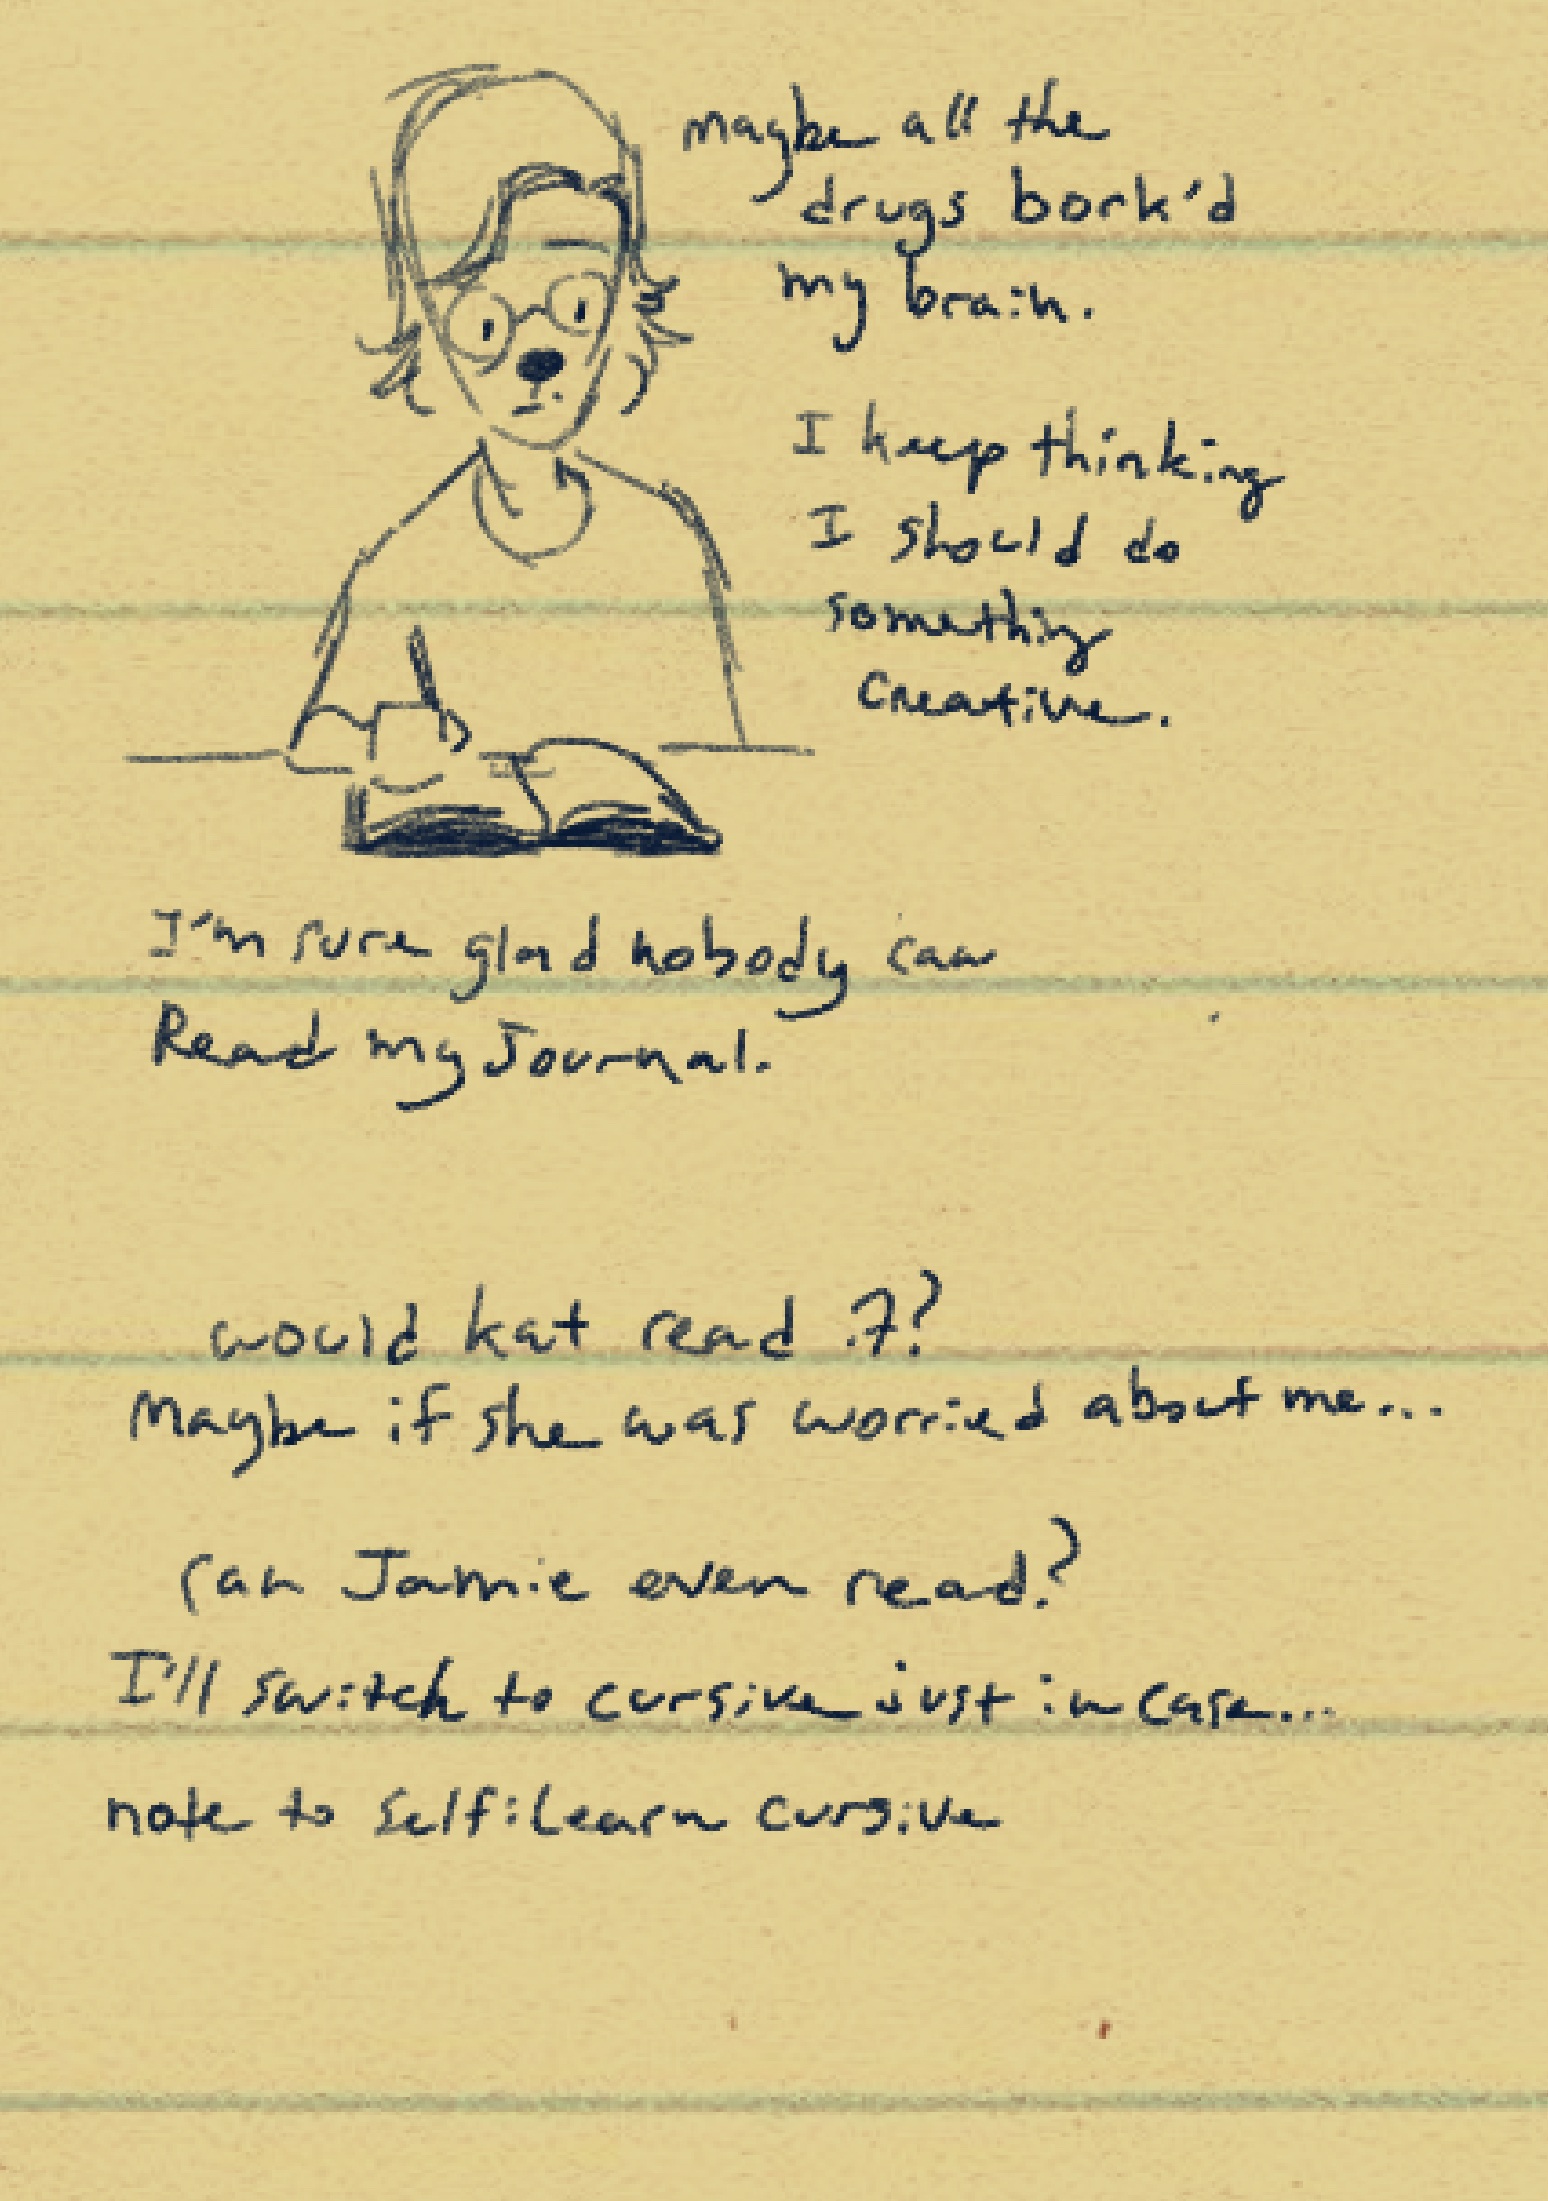 maybe all the
drugs bork'd
my brain.
I keep thinking
I should do
something
creative.
I'm sure glad nobody can
Read my Journal.
would kat read it?
Maybe if she was worried about me...
can Jamie even read?
I'll switch to cursive just in case...
note to self: learn cursive